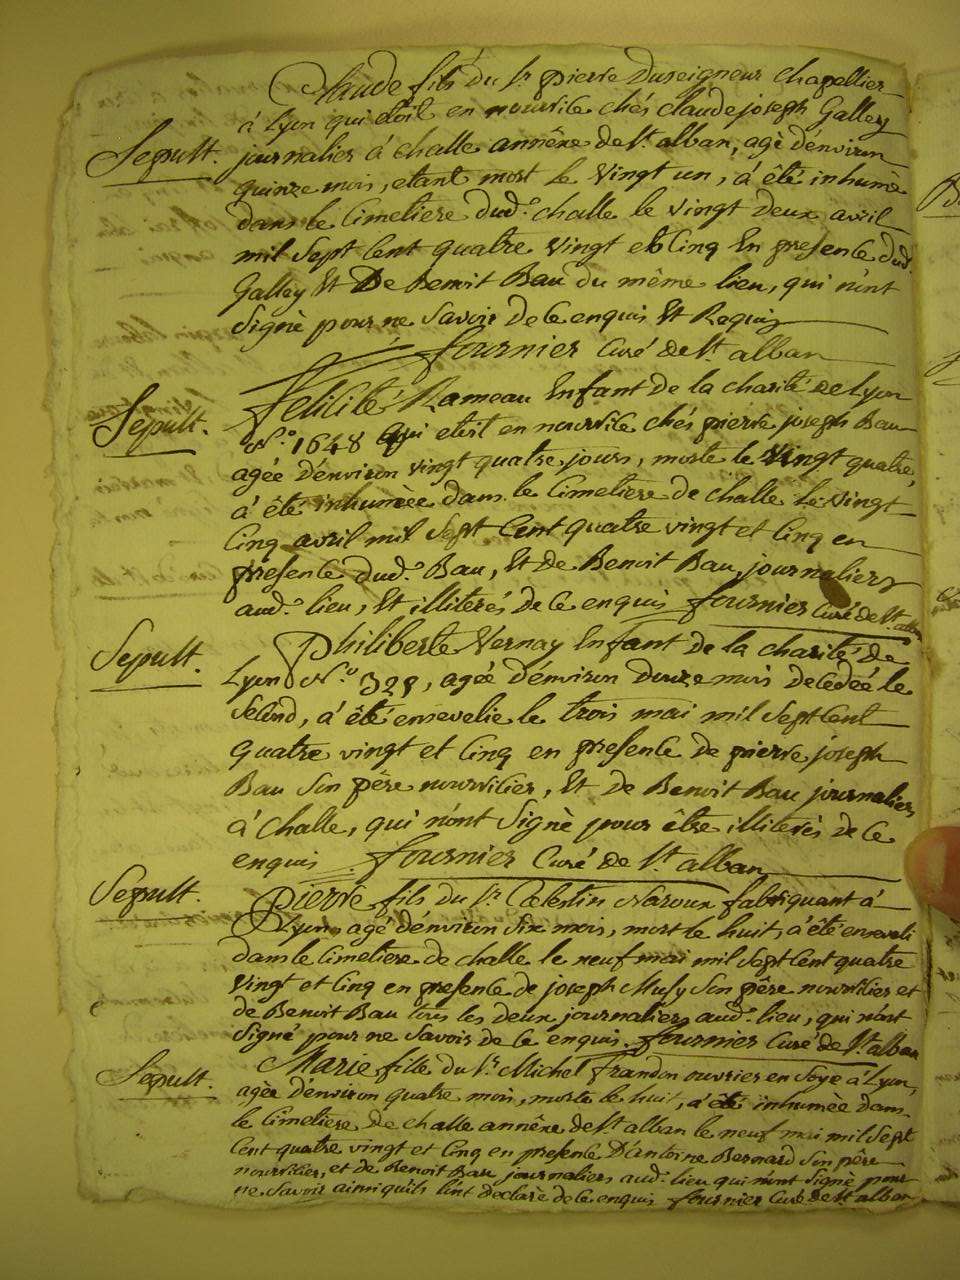 Claude fils du Sr. pierre Duseigneur chapellier
à Lyon qui étoit en nourrice chés claude joseph Galley
Sepult. journalier à challe annéxe de St. alban, agè d'environ
quinze mois, etant mort le vingt un, à été inhumè
dans le Cimetiere dud. challe le vingt deux avril
mil Sept Cent quatre vingt et Cinq En presence dud.
Galley Et De Benoit Bau du même lieu, qui n'ont
Signè pour ne Savoir de ce enquis Et Requis
fournier Curé de St. alban
Sepult. Felicité Rameau Enfant de la charité de Lyon
N.o 1648 qui etoit en nourrice chés pierre joseph Bau
agée d'environ vingt quatre jours, morte le vingt quatre,
à été inhumèe dans le Cimetiere de challe le vingt
Cinq avril mil Sept Cent quatre vingt et Cinq en
presence dud. Bau, Et de Benoit Bau journaliers
aud. lieu, Et illiterés de ce enquis fournier Curé de St. alban
Sepult. Philiberte Vernay Enfant de la charité de
Lyon N.o 329, agée d'environ douze mois decedeé le
Second, à été ensevelie le trois mai mil Sept Cent
quatre vingt et Cinq en presence de pierre joseph
Bau Son père nourricier, Et de Benoit Bau journaliers
à challe, qui n'ont Signè pour être illiterés de ce
enquis fournier Curé de St. alban
Sepult. Pierre fils du Sr. Cœlestin Naroux fabriquant à
Lyon, agé d'environ Six mois, mort le huit, à été enseveli
dans le Cimetiere de challe le neuf mai mil Sept Cent quatre
vingt et Cinq en presence de joseph Musy Son père nourricier et
de Benoit Bau tous les deux journaliers aud. lieu, qui n'ont
Signé pour ne Savoir de ce enquis fournier Curé de St. alban
Sepult. Marie fille du Sr. Michel frandon ouvrier en Soye à Lyon,
agée d'environ quatre mois, morte le huit, à été inhumèe dans
le Cimetiere de challe annéxe de St. alban le neuf mai mil Sept
Cent quatre vingt et Cinq en presence D'antoine Bernard Son père
nourricier, et de Benoit Bau journaliers aud. lieu qui n'ont Signè pour
ne Savoir ainsi qu'ils l'ont declaré de ce enquis fournier Curé de St. alban